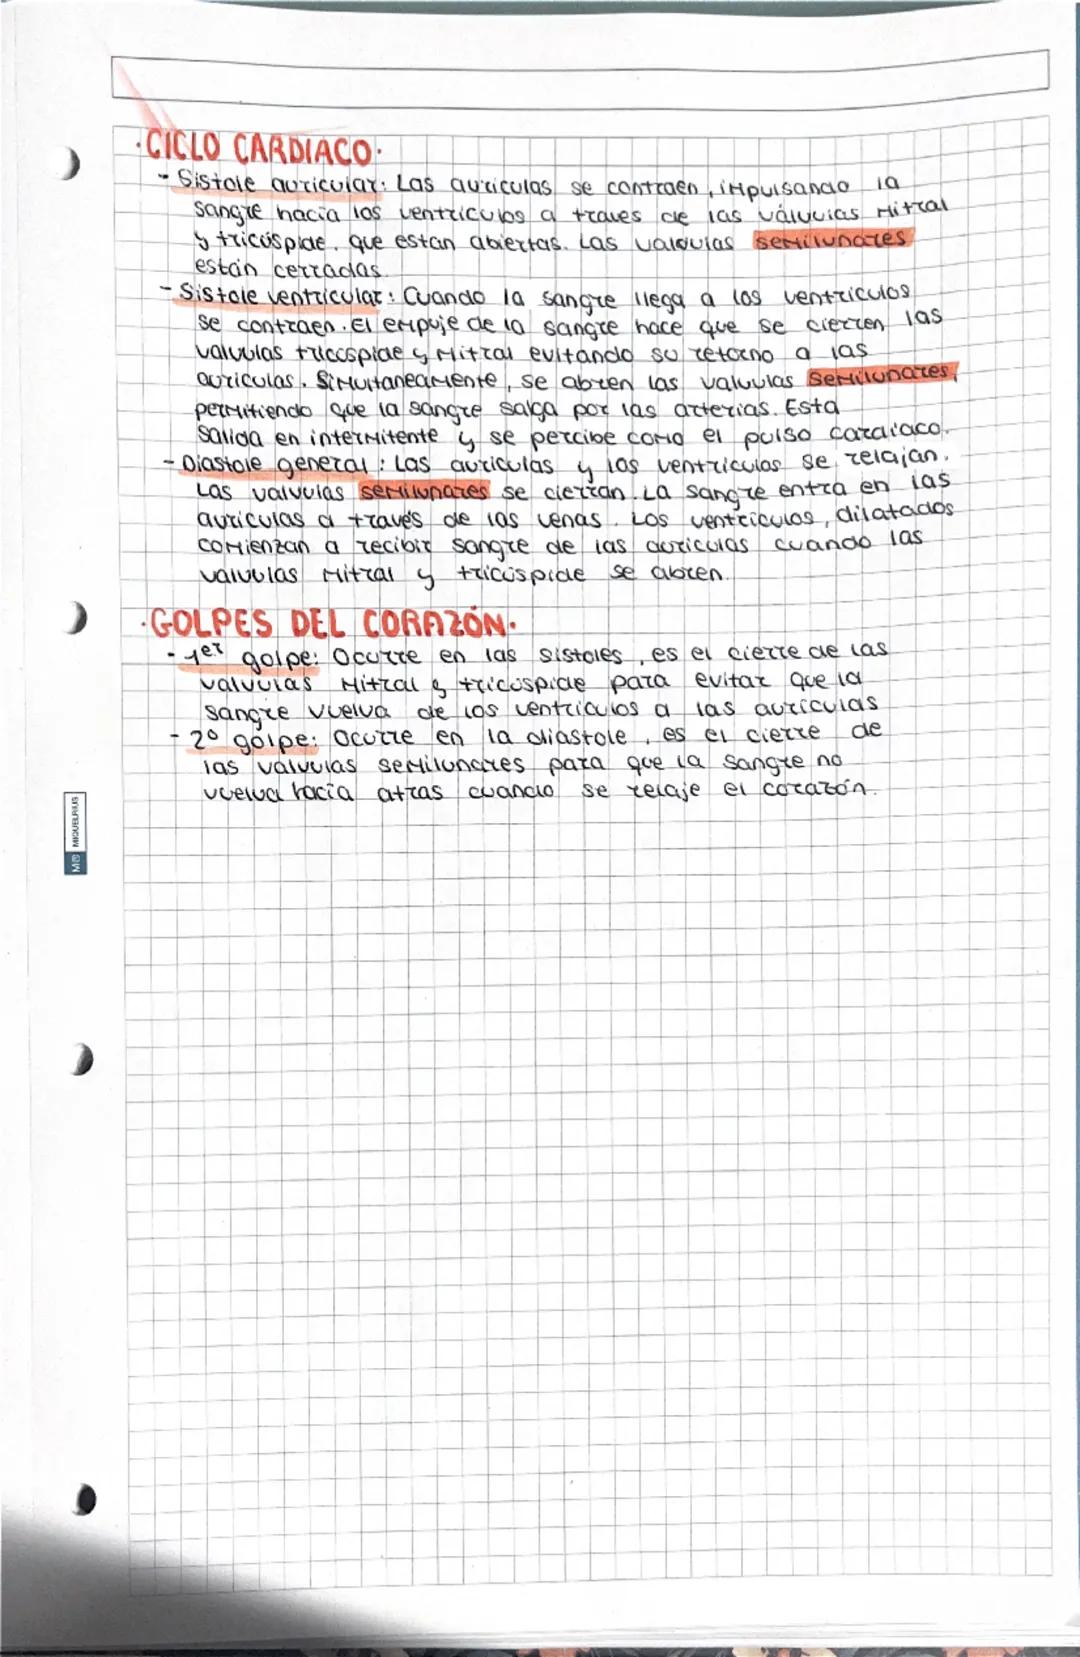 ·CICLO CARDIACO·
- Sistole auricular: Las auriculas se contraen, impulsando la
sangre hacia los ventriculos a traves de las válvulas mitral
y tricúspide, que estan abiertas. Las valvulas semilunares
están cerradas.
- Sistole ventricular: Cuando la sangre llega a los ventriculos
se contraen. El empuje de la sangre hace que se cierren las
valvulas tricuspide y mitral evitando su retorno a las
auriculas. Simultaneamente, se abren las valvulas semilunares,
permitiendo que la sangre salga por las arterias. Esta
salida en intermitente y se percibe como el pulso cardiaco.
- Diastole general: Las auriculas y los ventriculos se relajan.
Las valvulas semilunares se cierran. La sangre entra en las
auriculas a través de las venas. Los ventriculos, dilatados
comienzan a recibir sangre de las auriculas cuando las
valvulas mitral y tricúspide se abren.
·GOLPES DEL CORAZÓN·
- 1er golpe: Ocurre en las sistoles, es el cierre de las
valvulas mitral y tricuspide para evitar que la
sangre vuelva de los ventriculos a las auriculas
- 2º golpe: Ocurre en la diastole, es el cierre de
las valvulas semilunares para que la sangre no
vuelva hacia atras cuando se relaje el corazón.
MIQUELRIUS